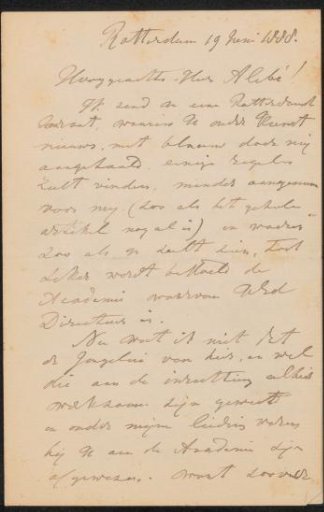 Rotterdam 19 Juni 1888.
Hooggeachte Heer Allebé!
Ik zend u een Rotterdamsch
Courant, waarin U onder Kunst
nieuws, met blauw door mij
aangehaald einige regelen
zult vinden, minder aangenaam
voor mij (zoo als het geheele
artikel nogal is) en waarin
zoo als ge zult zien, toch
zeker wordt de
Academie waarvan UEd
Directeur is.
Nu wat ik niet
de Jongelui van hier, en wel
die aan de inrichting alhier
werkzaam zijn geweest
en onder mijne leiding waren
bij U aan de Academie zijn
afgewezen. want zoover